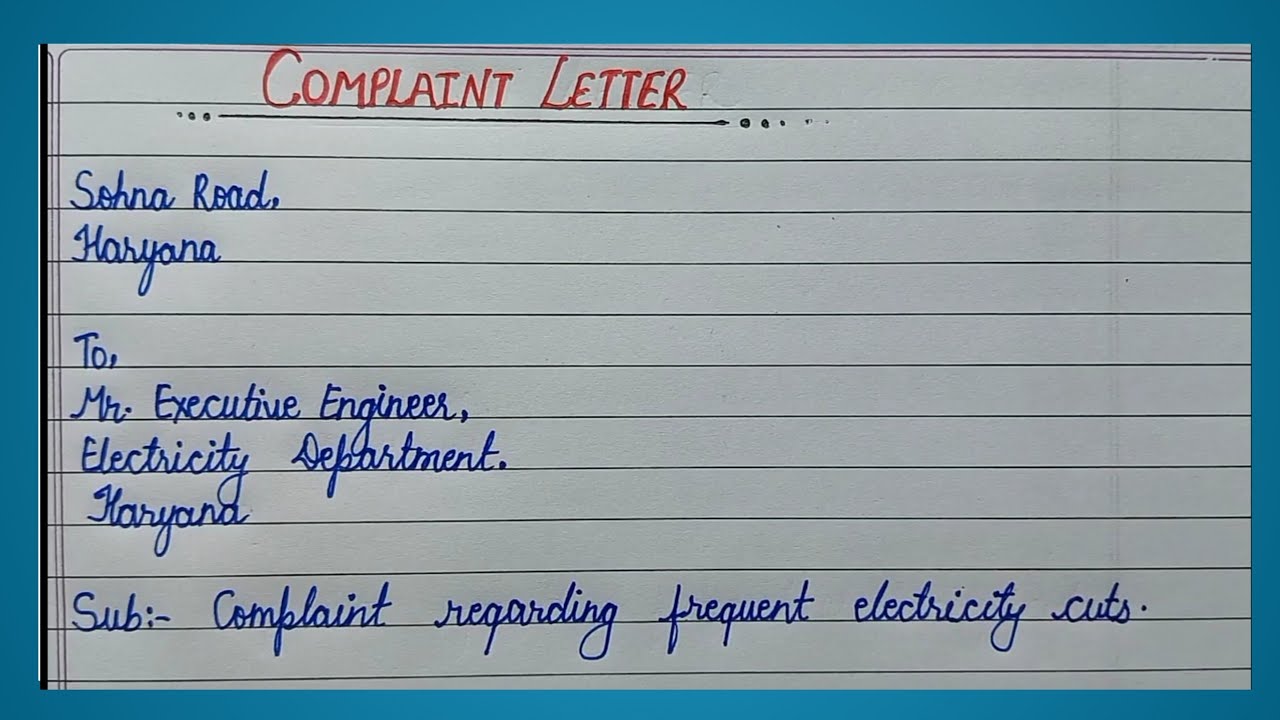 COMPLAINT LETTER
Sohna Road,
Haryana
To,
Mr. Executive Engineer,
Electricity Department.
Haryana
Sub:- Complaint regarding frequent electricity cuts.